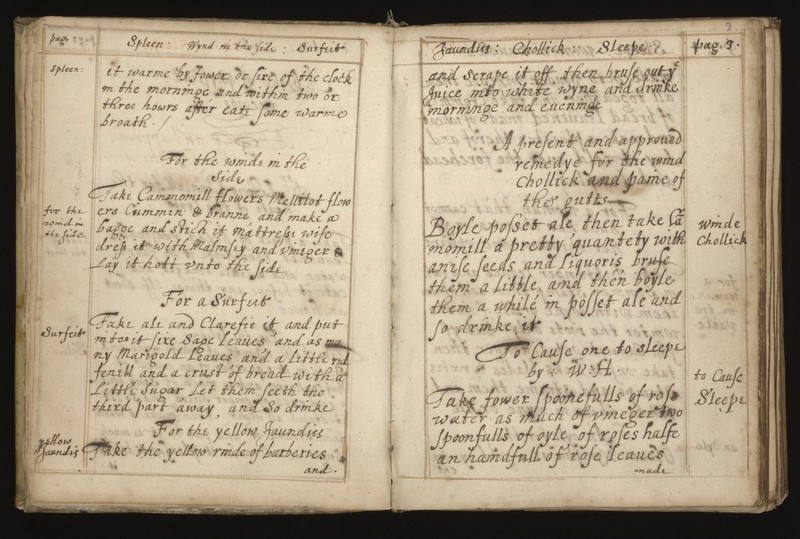 pag
Spleen: Wynd in the side: Surfeit
Spleen:
it warme by fower or sixe of the clock
in the morninge and within two or
three howrs after eate some warme
broath. /
For the winde in the
side
for the
wind in
the side
Take Cammomill flowers Mellitot flow
ers Cummin & branne and make a
bagge and stich it mattresse wise
dress it with Malmsey and viniger &
Lay it hott vnto the side
For a Surfeit
Surfeit
Take ale and Clarefie it and put
into it sixe Sage Leaues and as ma
ny Marigold Leaues and a little red
fenill and a crust of bread with a
Little Sugar Let them seeth the
third part away, and So drinke
For the yellow Jaundies
yellow
Jaundis
Take the yellow rinde of barberies
and.
9
Jaundiis: Chollick Sleepe
pag 9.
and scrape it off then bruse out ye
Juice into white wyne and drinke
morninge and eueninge
A present and approued
remedye for the wind
Chollick and paine of
the guttes
winde
Chollick
Boyle posset ale then take Ca
momill a pretty quantety with
anise seeds and liquoris bruse
them a little and then boyle
them a while in posset ale and
so drinke it
To Cause one to sleepe
by: W:H
to Cause
Sleepe
Take fower spoonefulls of rose
water as much of vineger two
spoonfulls of oyle of roses halfe
an handfull of rose leaues
made